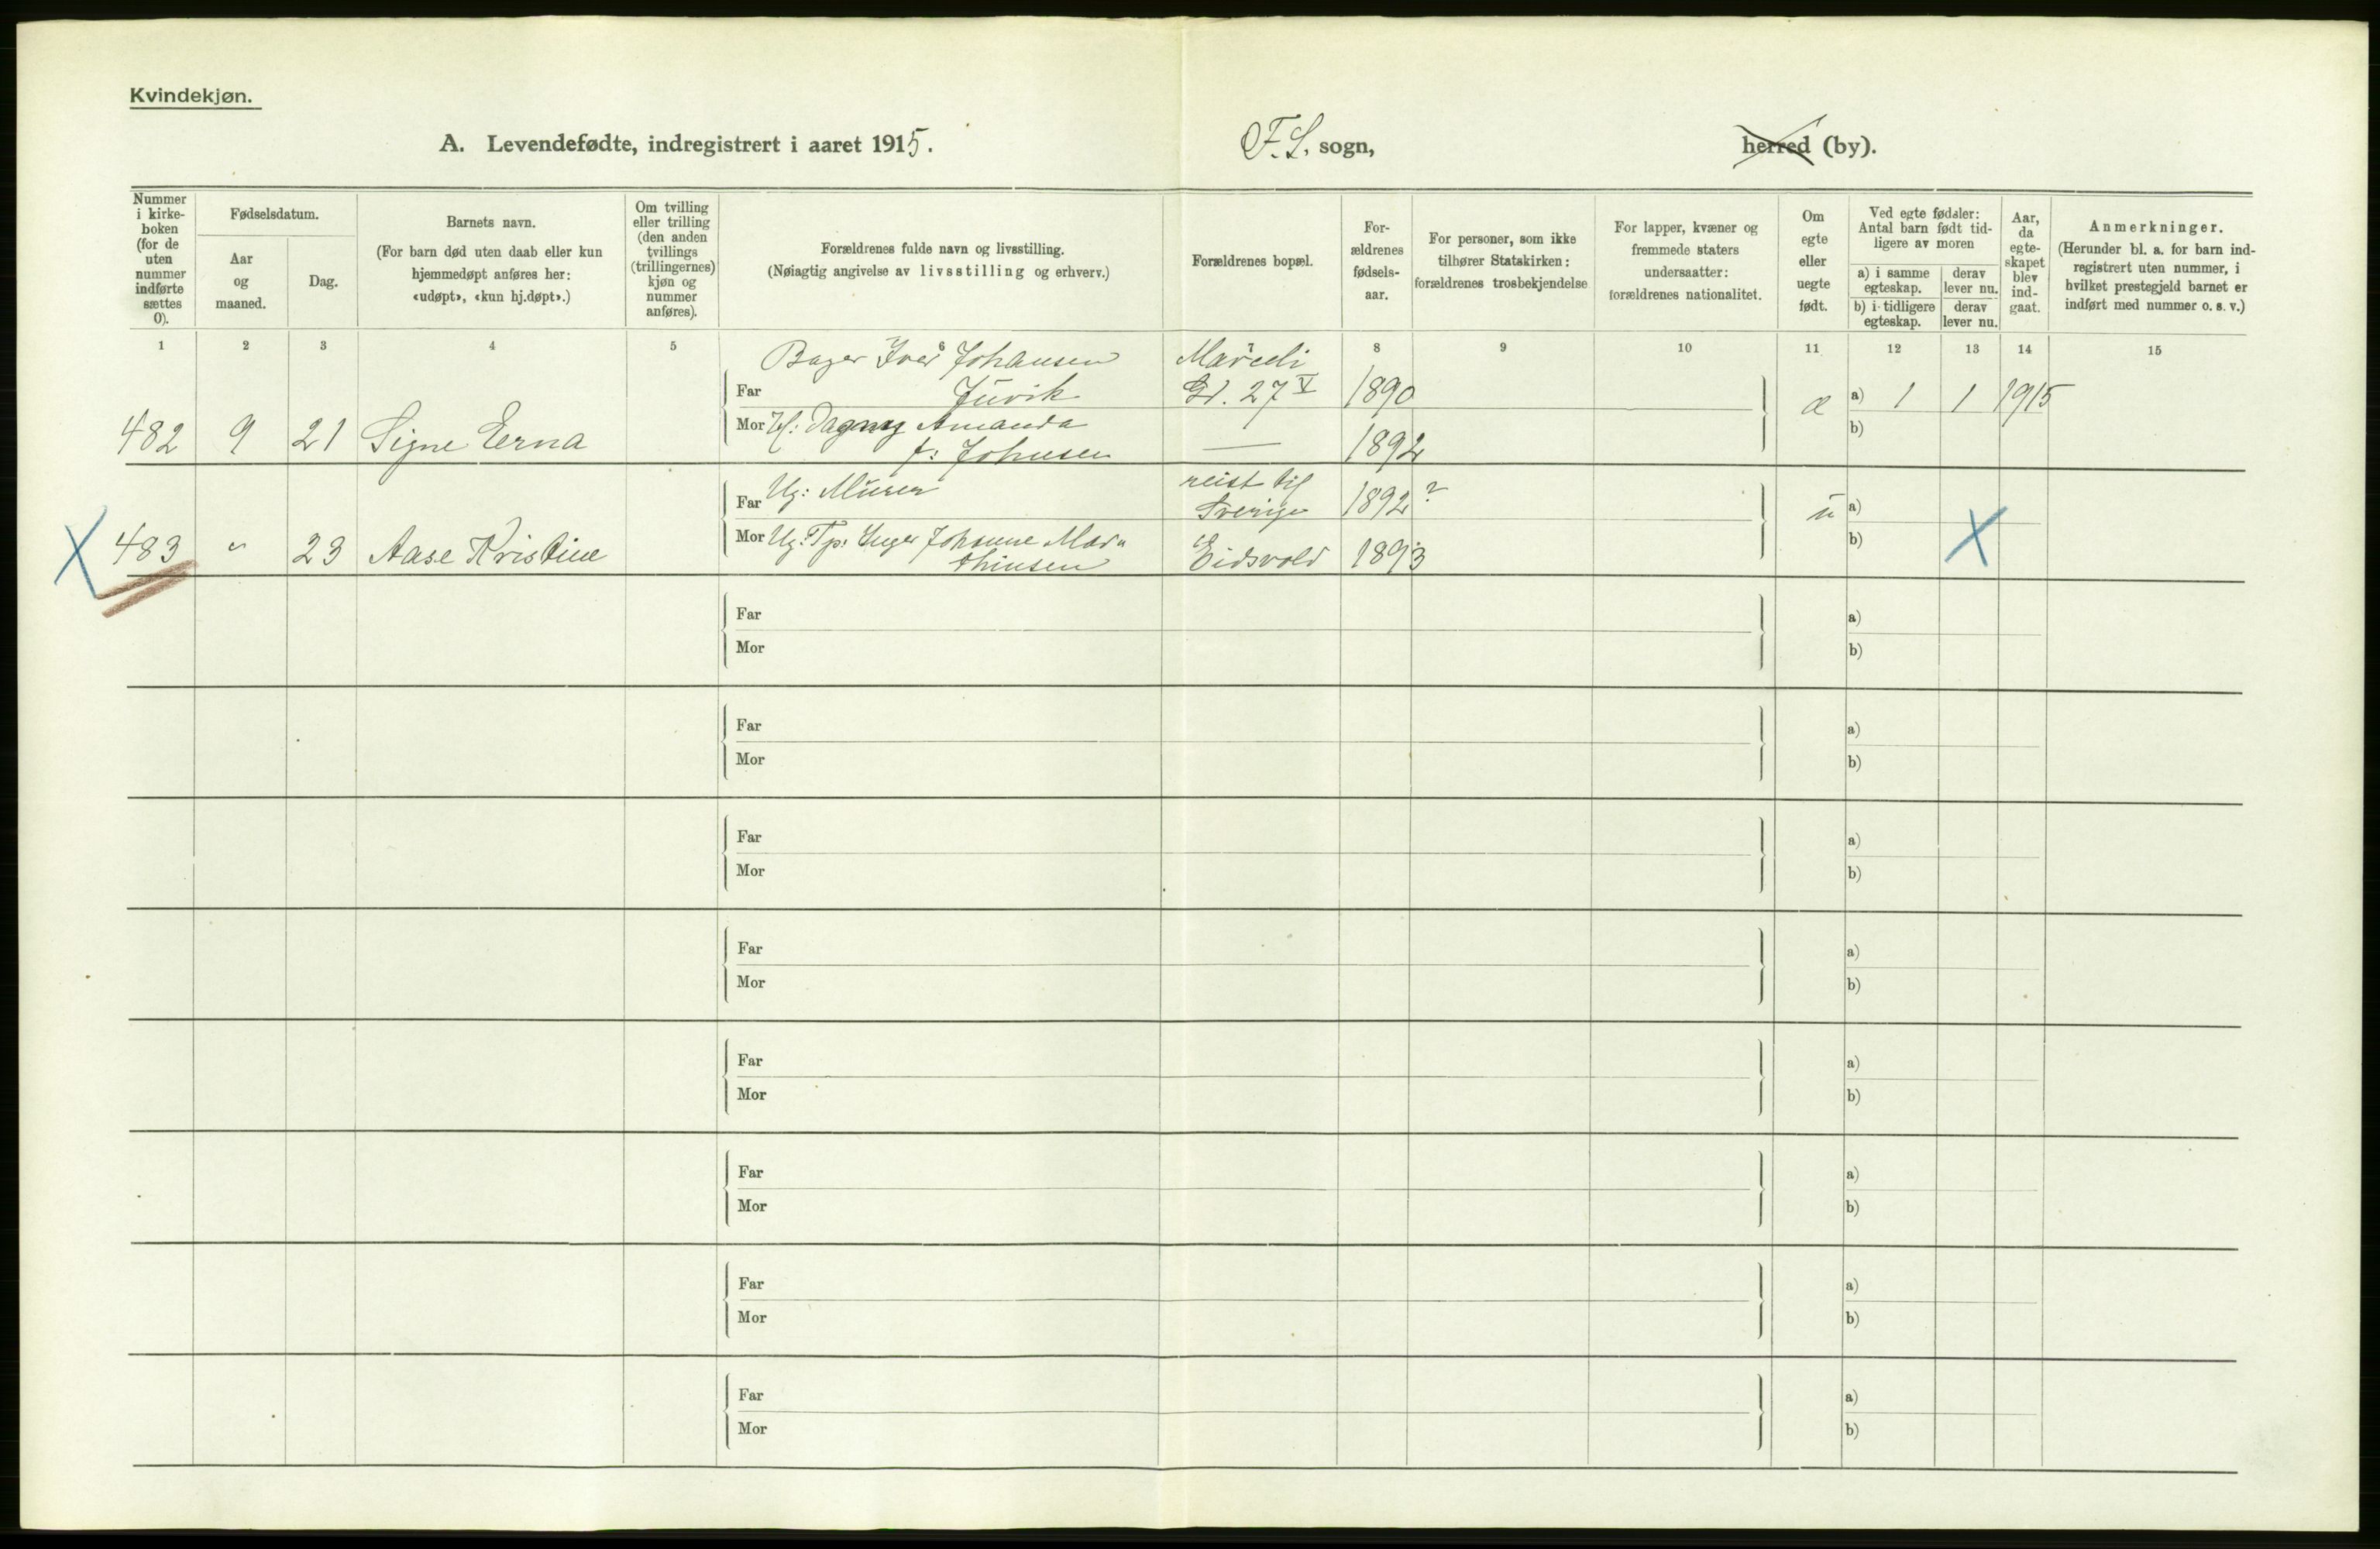 Kvindekjøn.
A. Levendefødte, indregistrert i aaret 1915. F. S. sogn, herred (by).
Nummer i kirke-boken (for de uten nummer indførte sættes 0).
Fødselsdatum.
Aar og maaned.
Dag.
Barnets navn.
(For barn død uten daab eller kun hjemmedøpt anføres her: «udøpt», «kun hj.døpt».)
Om tvilling eller trilling (den anden tvillings (trillingernes) kjøn og nummer anføres).
Forældrenes fulde navn og livsstilling.
(Nøiagtig angivelse av livsstilling og erhverv.)
Forældrenes bopæl.
For-ældrenes fødsels-aar.
For personer, som ikke tilhører Statskirken: forældrenes trosbekjendelse
For lapper, kvæner og fremmede staters undersaatter: forældrenes nationalitet.
Om egte eller uegte født.
Ved egte fødsler: Antal barn født tid-ligere av moren
a) i samme egteskap.
derav lever nu.
b) i tidligere egteskap.
derav lever nu.
Aar, da egte-skapet blev ind-gaat.
Anmerkninger.
(Herunder bl. a. for barn ind-registrert uten nummer, i hvilket prestegjeld barnet er indført med nummer o. s. v.)
1 2 3 4 5 6 8 9 10 11 12 13 14 15
Bager Iver Johansen Marceli
Far Juvik Gt. 27 V 1890 æ a) 1 1 1915
482 9 21 Signe Erna Mor H: Dagny Amanda b)
f: Johnsen — 1892
Far Ug: Murer reist til Sverige 1892? u a)
483 " 23 Aase Kristine Mor Ug: Tp: Inger Johanne Mar-
thinsen Eidsvold 1893 b)
Far a)
Mor b)
Far a)
Mor b)
Far a)
Mor b)
Far a)
Mor b)
Far a)
Mor b)
Far a)
Mor b)
Far a)
Mor b)
Far a)
Mor b)